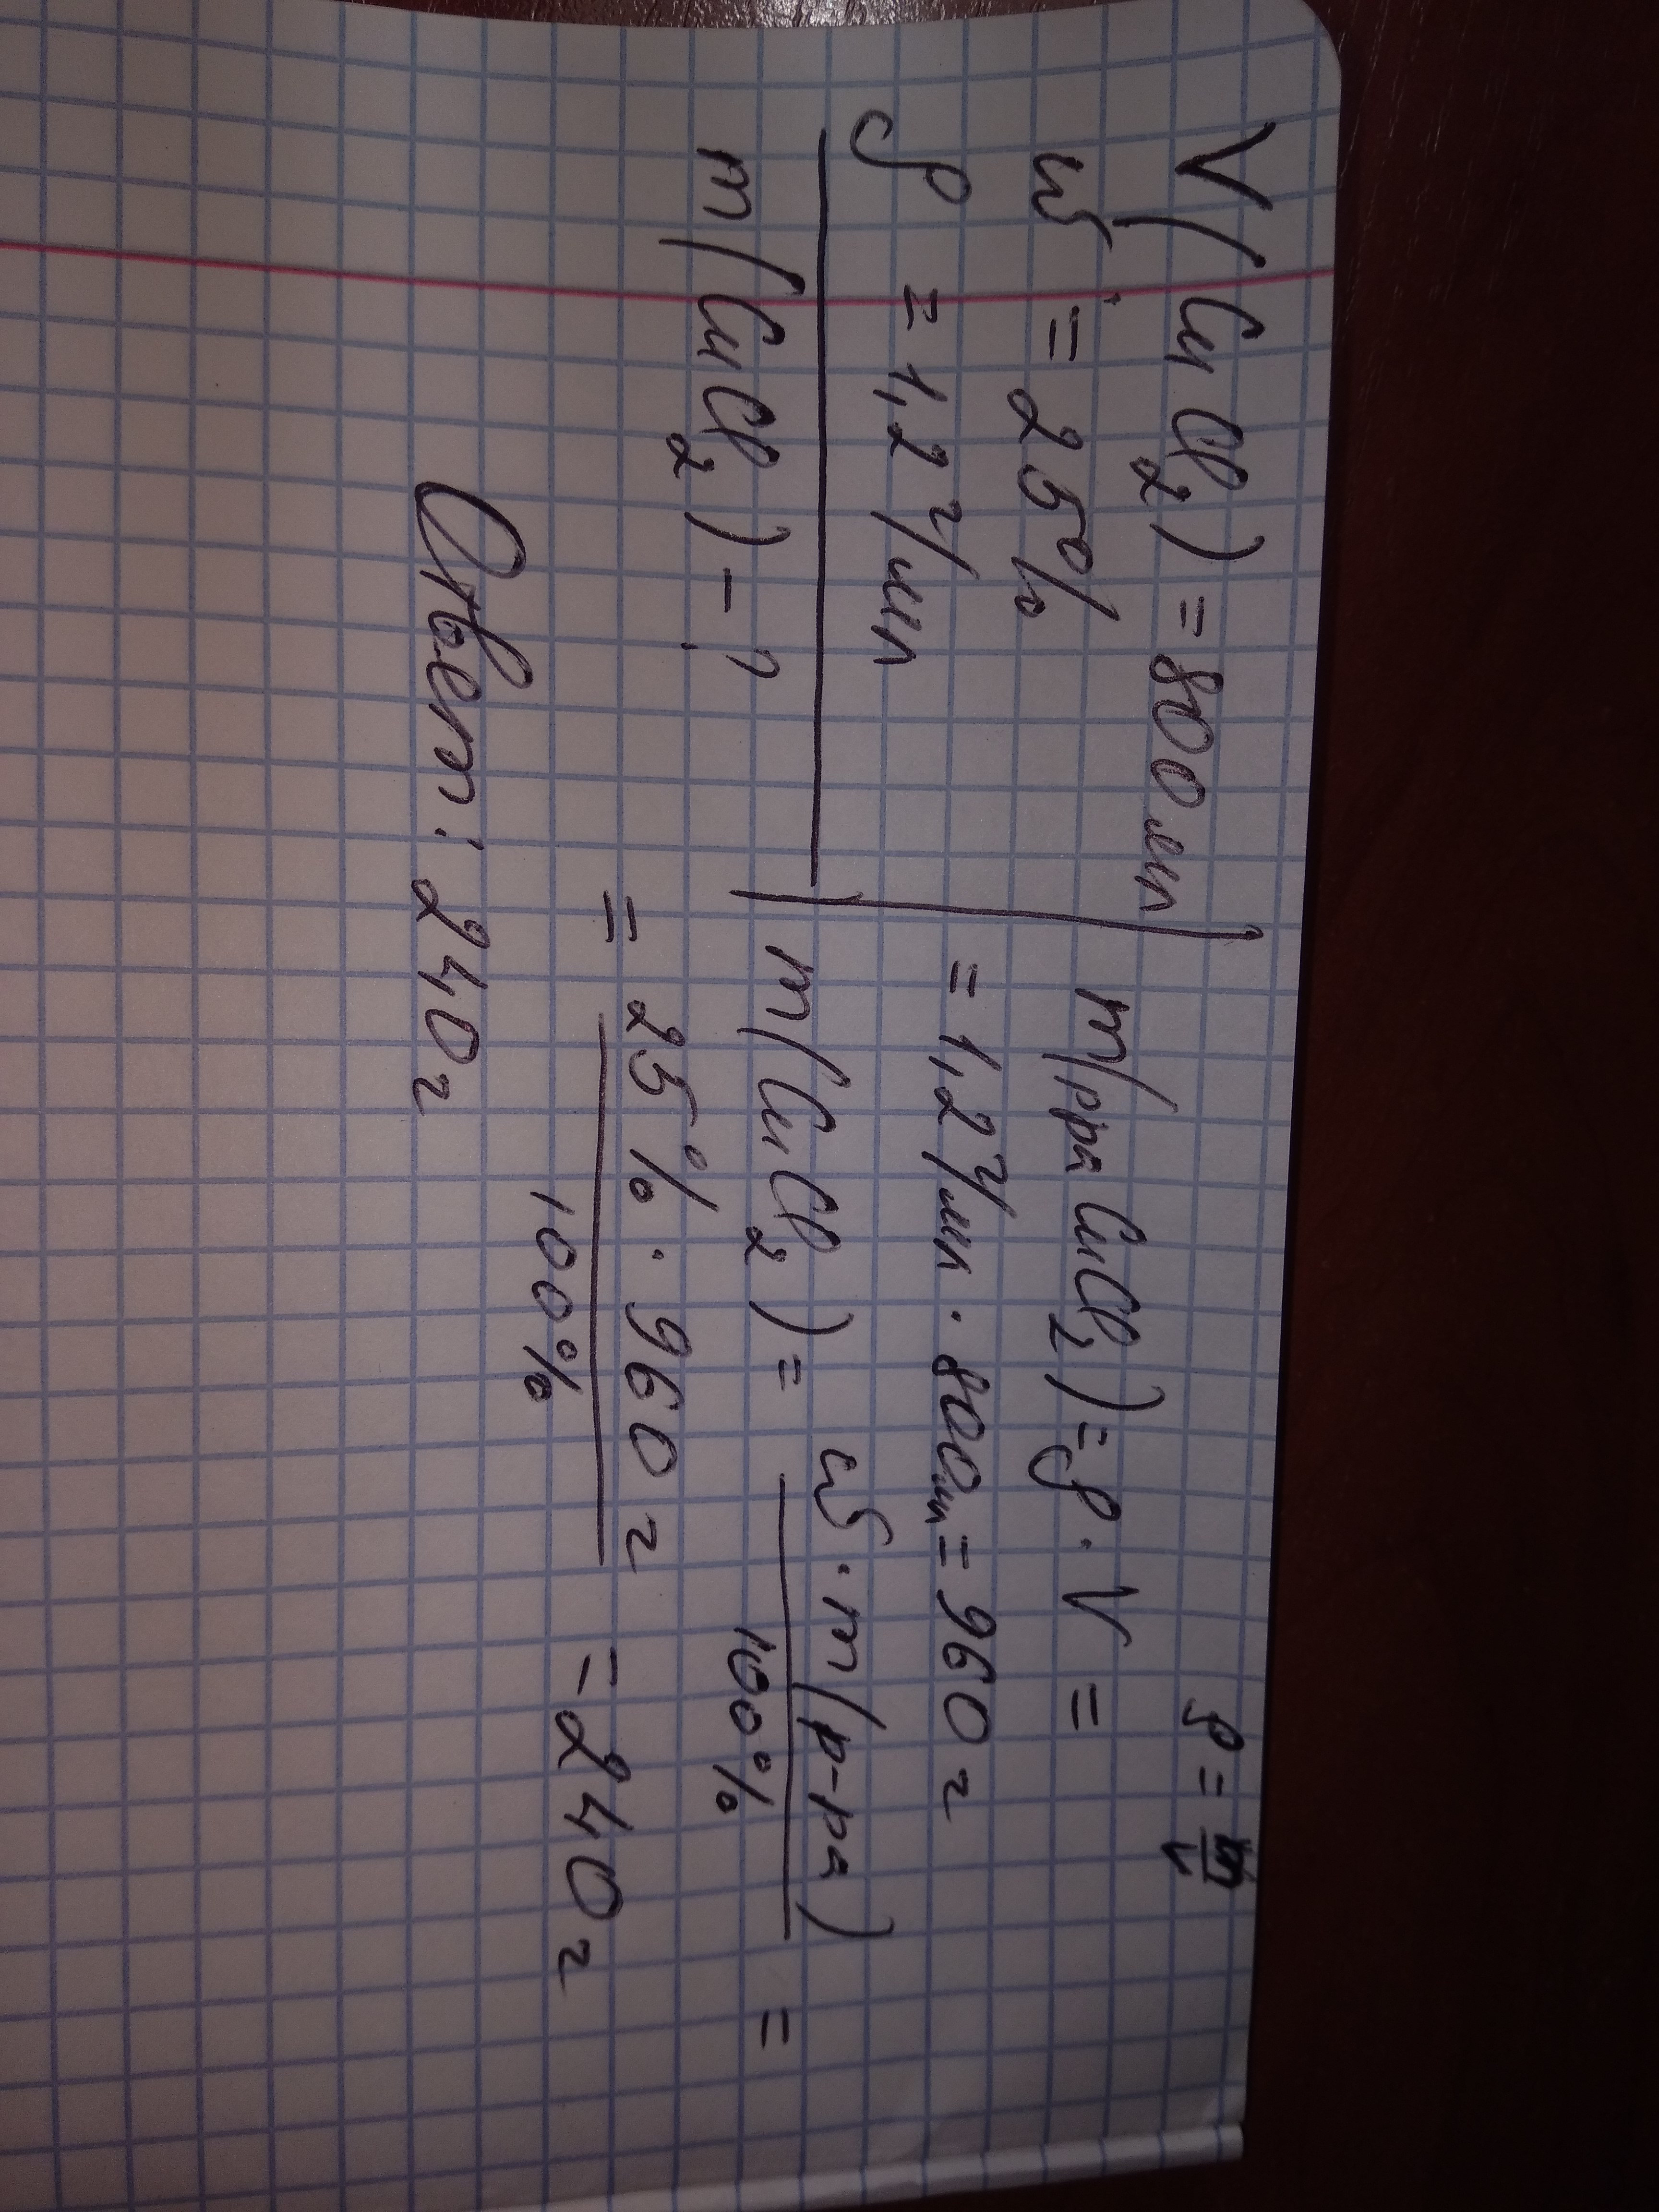 V(CuCl₂) = 800 мл
ω = 25%
ρ = 1,2 г/мл
m(CuCl₂) - ?
ρ = m/V
m(рра CuCl₂) = ρ · V =
= 1,2 г/мл · 800мл = 960 г
m(CuCl₂) = ω · m(р-ра) / 100% =
= 25% · 960 г / 100% = 240 г
Ответ: 240 г